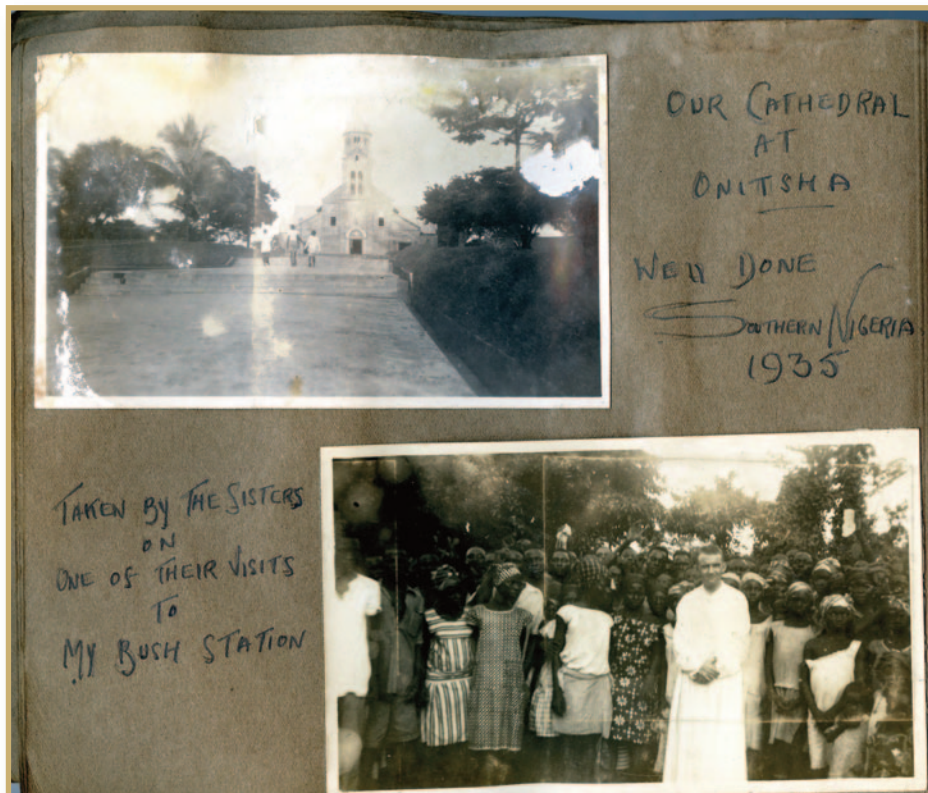 OUR CATHEDRAL
AT
ONITSHA
WELL DONE
SOUTHERN NIGERIA
1935
TAKEN BY THE SISTERS
ON
ONE OF THEIR VISITS
TO
MY BUSH STATION